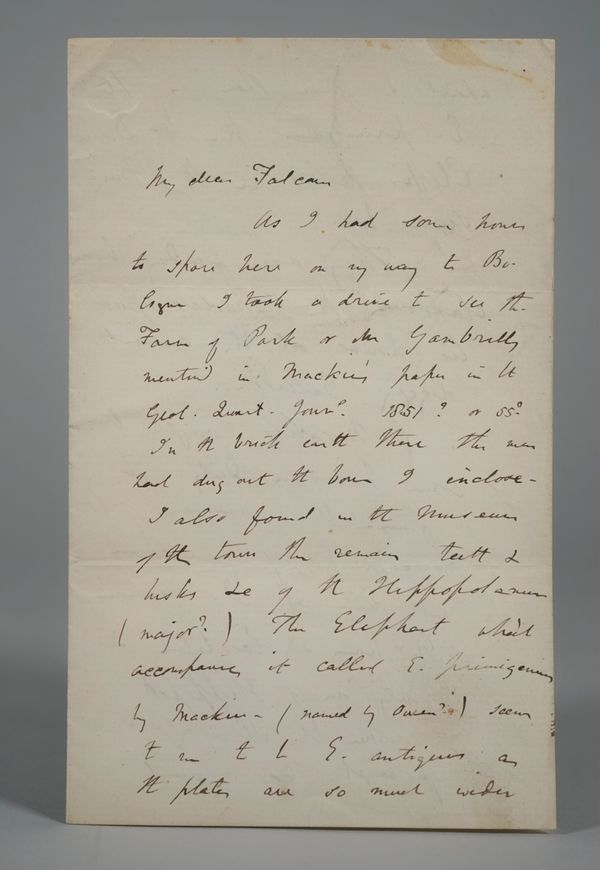 My dear Falconer
As I had some hours
to spare here on my way to Bo-
logne I took a drive to see the
Farm of Park or Mr Gambrills
mention'd in Mackie's paper in the
Geol. Quart. Journl. 1851? or 55?
In the brick earth there the men
had dug out the bones I inclose -
I also found in the Museum
of the town the remains teeth &
tusks &c of the Hippopotamus
(major?) The Elephant which
accompanies it called E. primigenius
by Mackie - (named by Owen?) seems
to me to be E. antiquus as
the plates are so much wider